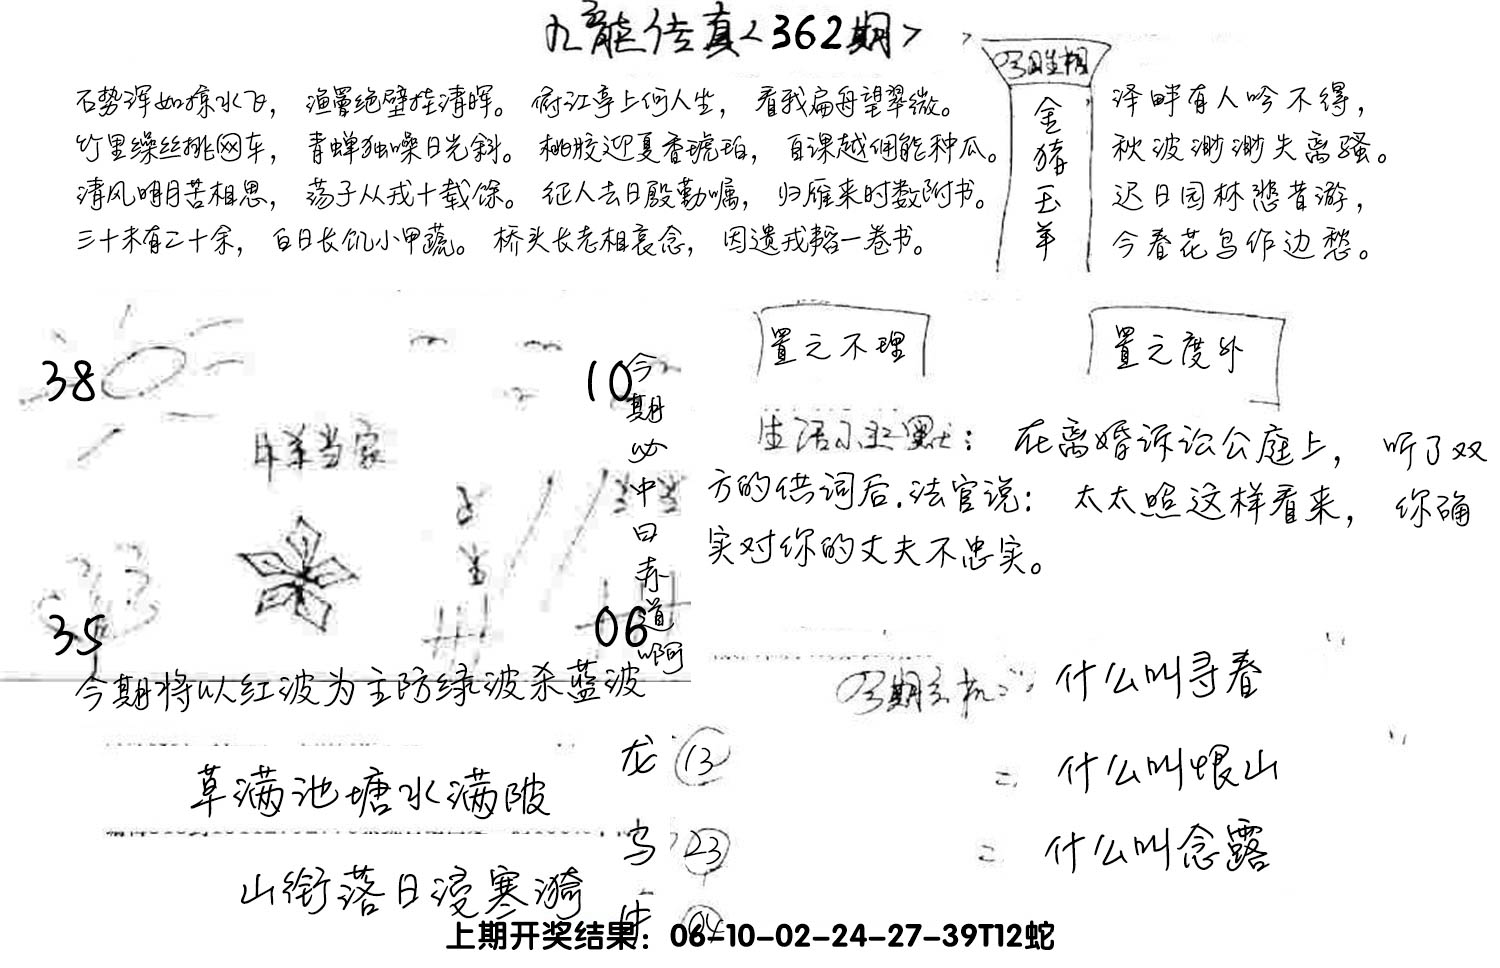 九龍传真<362期>
石势浑如掠水飞，渔罾绝壁挂清晖。俯江亭上何人坐，看我扁舟望翠微。
竹里缲丝挑网车，青蝉独噪日光斜。桃胶迎夏香琥珀，自课越佣能种瓜。
清风明月苦相思，荡子从戎十载馀。征人去日殷勤嘱，归雁来时数附书。
三十未有二十余，白日长饥小甲蔬。桥头长老相哀念，因遗戎韬一卷书。
今期生相
金猪玉羊
泽畔有人吟不得，
秋波渺渺失离骚。
迟日园林悲昔游，
今春花鸟作边愁。
38
10
今期必中曰赤道啊
羊当家
35
06
今期将以红波为主防绿波杀蓝波
置之不理
置之度外
生活小幽默：在离婚诉讼公庭上，听了双
方的供词后.法官说：太太照这样看来，你确
实对你的丈夫不忠实。
今期玄机：什么叫寻春
= 什么叫恨山
= 什么叫念露
草满池塘水满陂
山衔落日浸寒漪
龙 13
鸟 23
牛 04
上期开奖结果：06-10-02-24-27-39T12蛇